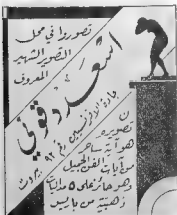 تصوروا في محل
التصوير الشهير
المعروف
اسعد دقوني
جادة الافرنسيين رقم
ن
تصويره
هو آية ساحرة
من آيات الفن الجميل
وهو حائز على ٥ مداليات
ذهبية من باريس